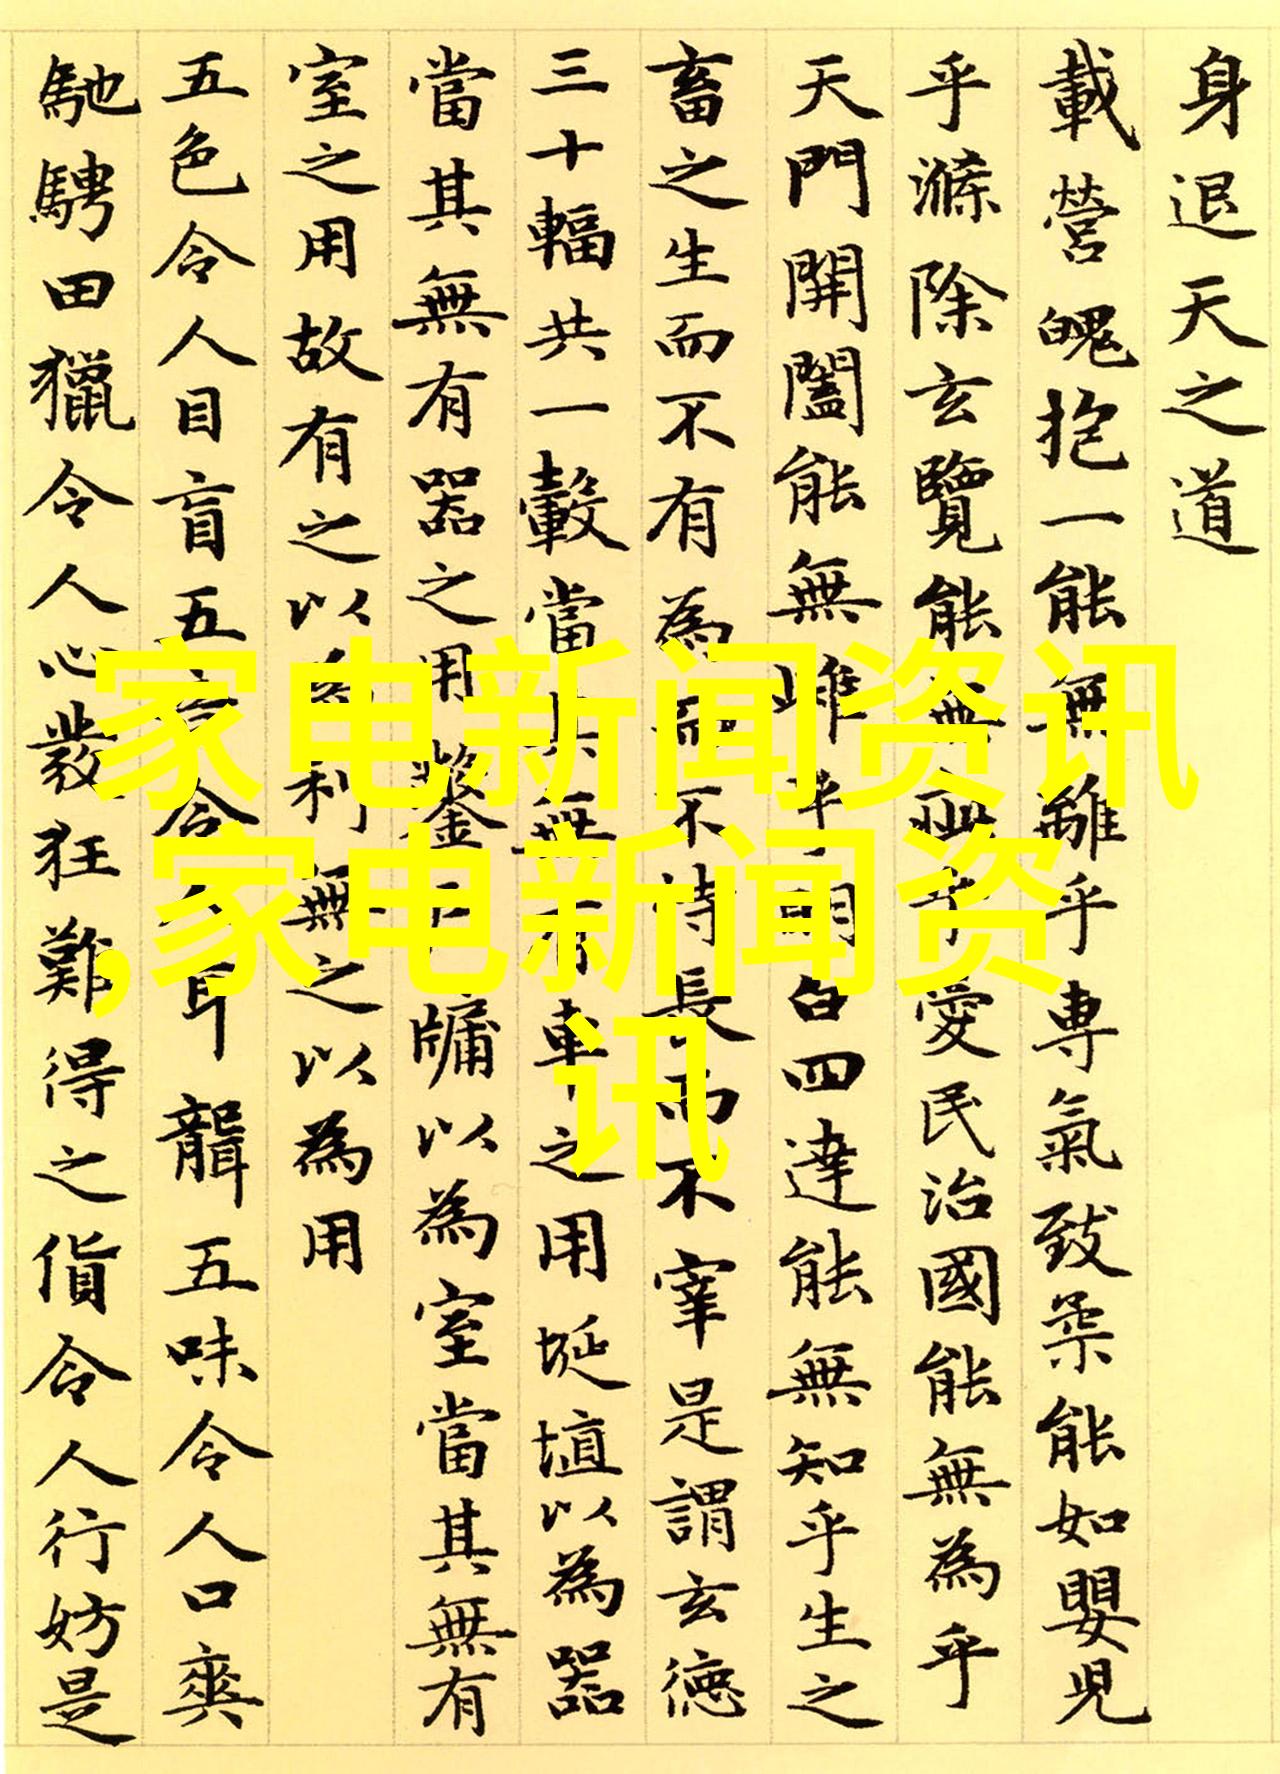 身退天之道
載營魄抱一能無離乎專氣致柔能如嬰兒
乎滌除玄覽能無疵乎愛民治國能無為乎
天門開闔能無雌乎明白四達能無知乎生之
畜之生而不有為而不恃長而不宰是謂玄德
三十輻共一轂當其無有車之用埏埴以為器
當其無有器之用鑿戶牖以為室當其無有
室之用故有之以為利無之以為用
五色令人目盲五音令人耳聾五味令人口爽
馳騁田獵令人心發狂難得之貨令人行妨是
家电新闻资讯
,家电新闻资
讯